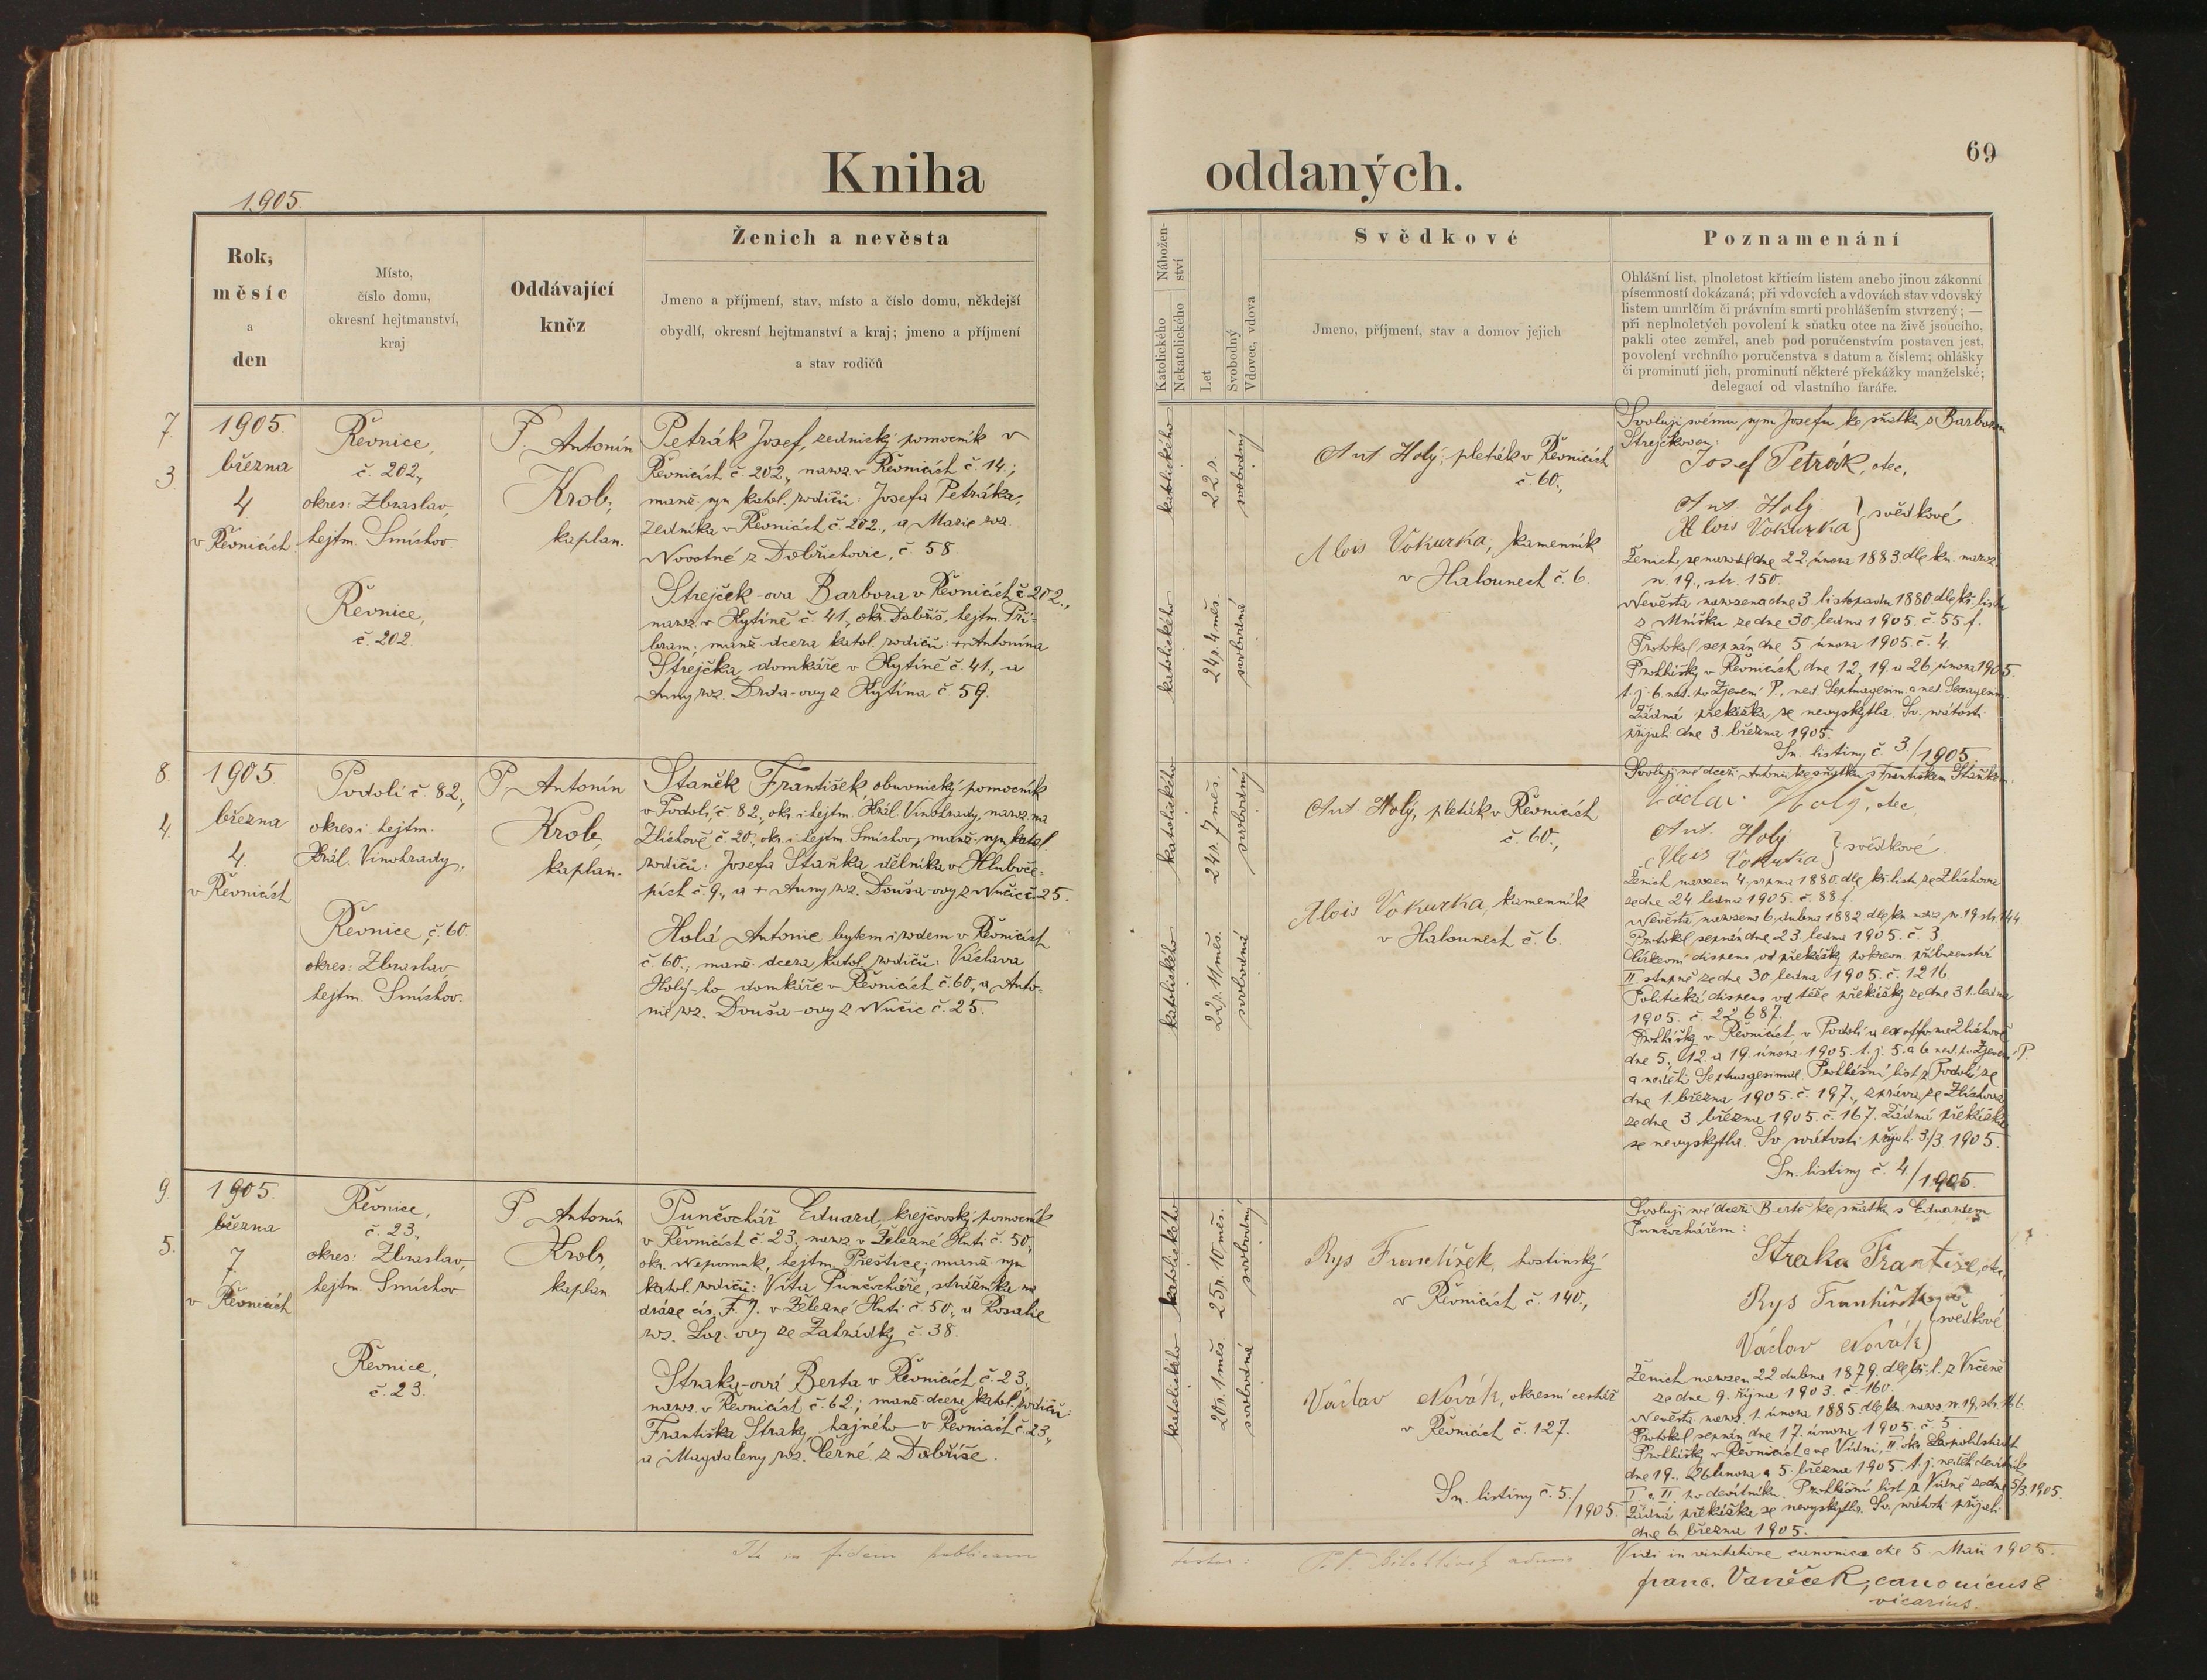 Kniha oddaných.
69
1905.
Rok,
měsíc
a
den
Místo,
číslo domu,
okresní hejtmanství,
kraj
Oddávající
kněz
Ženich a nevěsta
Jmeno a příjmení, stav, místo a číslo domu, někdejší
obydlí, okresní hejtmanství a kraj; jmeno a příjmení
a stav rodičů
Nábožen-
ství
Katolického
Nekatolického
Let
Svobodný
Vdovec, vdova
Svědkové
Jmeno, příjmení, stav a domov jejich
Poznamenání
Ohlášní list, plnoletost křticím listem anebo jinou zákonní
písemností dokázaná; při vdovcích a vdovách stav vdovský
listem umrlčím či právním smrti prohlášením stvrzený; —
při neplnoletých povolení k sňatku otce na živě jsoucího,
pakli otec zemřel, aneb pod poručenstvím postaven jest,
povolení vrchního poručenstva s datum a číslem; ohlášky
či prominutí jich, prominutí některé překážky manželské;
delegací od vlastního faráře.
7.
3.
1905.
března
4
v Řevnicích
Řevnice,
č. 202,
okres: Zbraslav,
hejtm. Smíchov
Řevnice,
č. 202.
P. Antonín
Krob,
kaplan.
Petrák Josef, zednický pomocník v
Řevnicích č. 202., naroz. v Řevnicích č. 14.;
manž. syn katol. rodičů: Josefa Petráka,
zedníka v Řevnicích č. 202., a Marie roz.
Novotné z Dobřichovic, č. 58.
Strejček-ova Barbora v Řevnicích č. 202.,
naroz. v Kytíně č. 41., okr. Dobříš, hejtm. Pří-
bram; manž. dcera katol. rodičů: + Antonína
Strejčka, domkáře v Kytíně č. 41., a
Anny roz. Drda-ovy z Kytína č. 59.
katolického
22 r.
svobodný
katolického
24 r. 4 měs.
svobodná
Ant. Holý, pleták v Řevnicích
č. 60.,
Alois Vokurka, kamenník
v Halounech č. 6.
Svoluji svému synu Josefu ke sňatku s Barborou
Strejčkovou:
Josef Petrák, otec,
Ant. Holý
Alois Vokurka } svědkové.
Ženich se narodil dne 22. února 1883. dle kn. naroz.
n. 19., str. 150.
Nevěsta narozena dne 3. listopadu 1880. dle kř. listu
z Mníšku ze dne 30. ledna 1905. č. 55 f.
Protokol sepsán dne 5. února 1905. č. 4.
Prohlášky v Řevnicích dne 12., 19. a 26. února 1905.
t. j. 6. ned. po Zjevení P., ned. Septuagesim. a ned. Sexagesim.
Žádná překážka se nevyskytla. Sv. svátosti
přijali dne 3. března 1905.
Sn. listiny č. 3./1905.
8.
4.
1905.
března
4.
v Řevnicích
Podolí č. 82.,
okres i hejtm.
Král. Vinohrady.
Řevnice, č. 60.
okres: Zbraslav
hejtm. Smíchov.
P. Antonín
Krob,
kaplan.
Staněk František, obuvnický pomocník
v Podolí, č. 82., okr. i hejtm. Král. Vinohrady, naroz. na
Zlíchově č. 20., okr. i hejtm. Smíchov, manž. syn katol.
rodičů: Josefa Staňka, dělníka v Hluboče-
pích č. 9., a + Anny roz. Douša-ovy z Nučic č. 25.
Holá Antonie bytem i rodem v Řevnicích
č. 60., manž. dcera katol. rodičů: Václava
Holý-ho domkáře v Řevnicích č. 60., a Anto-
nie roz. Douša-ovy z Nučic č. 25.
katolického
24 r. 7 měs.
svobodný
katolického
22 r. 11 měs.
svobodná
Ant Holý, pleták v Řevnicích
č. 60.,
Alois Vokurka, kamenník
v Halounech č. 6.
Svoluji mé dceři Antonii ke sňatku s Františkem Staňkem.
Václav Holý, otec
Ant. Holý
Alois Vokurka } svědkové.
Ženich narozen 4. srpna 1880. dle kř. listu ze Zlíchova
ze dne 24. ledna 1905. č. 88 f.
Nevěsta narozena 6. dubna 1882 dle kn. naroz. n. 19. str. 144
Protokol sepsán dne 23. ledna 1905. č. 3.
Církevní dispens od překážky pokrevn. příbuzenství
II. stupně ze dne 30. ledna 1905. č. 1216.
Politická dispens od téže překážky ze dne 31. ledna
1905. č. 22.687.
Prohlášky v Řevnicích, v Podolí a ex offo na Zlíchově
dne 5., 12. a 19. února 1905. t. j. 5. a 6. ned. po Zjevení P.
a neděli Septuagesimae. Prohlášní list z Podolí ze
dne 1. března 1905. č. 197., zpráva ze Zlíchova
ze dne 3. března 1905. č. 167. Žádná překážka
se nevyskytla. Sv. svátosti přijali 3./3. 1905.
Sn. listiny č. 4./1905.
9.
5.
1905.
března
7.
v Řevnicích
Řevnice,
č. 23.,
okres: Zbraslav,
hejtm. Smíchov
Řevnice,
č. 23.
P. Antonín
Krob,
kaplan
Punčochář Eduard, krejčovský pomocník
v Řevnicích č. 23., naroz. v Železné Huti č. 50.,
okr. Nepomuk, hejtm. Přeštice; manž. syn
katol. rodičů: Víta Punčocháře, strážníka na
dráze cís. F. J. v Železné Huti č. 50., a Rosalie
roz. ze Zahrádky č. 38.
Straka-ová Berta v Řevnicích č. 23.,
naroz. v Řevnicích č. 62.; manž. dcera katol. rodičů:
Františka Straky, hajného v Řevnicích č. 23.,
a Magdaleny roz. Černé z Dobříše.
katolického
25 r. 10 měs.
svobodný
katolického
20 r. 1 měs.
svobodná
Rys František, hostinský
v Řevnicích č. 140.,
Václav Novák, okresní cestář
v Řevnicích č. 127.
Sn. listiny č. 5./1905.
Svoluji mé dceři Bertě ke sňatku s Eduardem
Punčochářem:
Straka František, otec,
Rys František
Václav Novák } svědkové
Ženich narozen 22. dubna 1879. dle kř. l. z Vrčeně
ze dne 9. října 1903. č. 160.
Nevěsta naroz. 1. února 1885. dle kn. naroz. n. 19, str. 166.
Protokol sepsán dne 17. února 1905. č. 5.
Prohlášky v Řevnicích a ve Vídni, II. okr. Leopoldstadt
dne 19., 26. února a 5. března 1905. t. j. neděli devítník,
I. a II. po devítníku. Prohlášní list z Vídně ze dne 5/3. 1905.
Žádná překážka se nevyskytla. Sv. svátosti přijali
dne 6. března 1905.
in fidem publicam
testor:
Vidi in visitatione canonica die 5. Maii 1905.
Franc. Vaněček, canonicus &
vicarius.